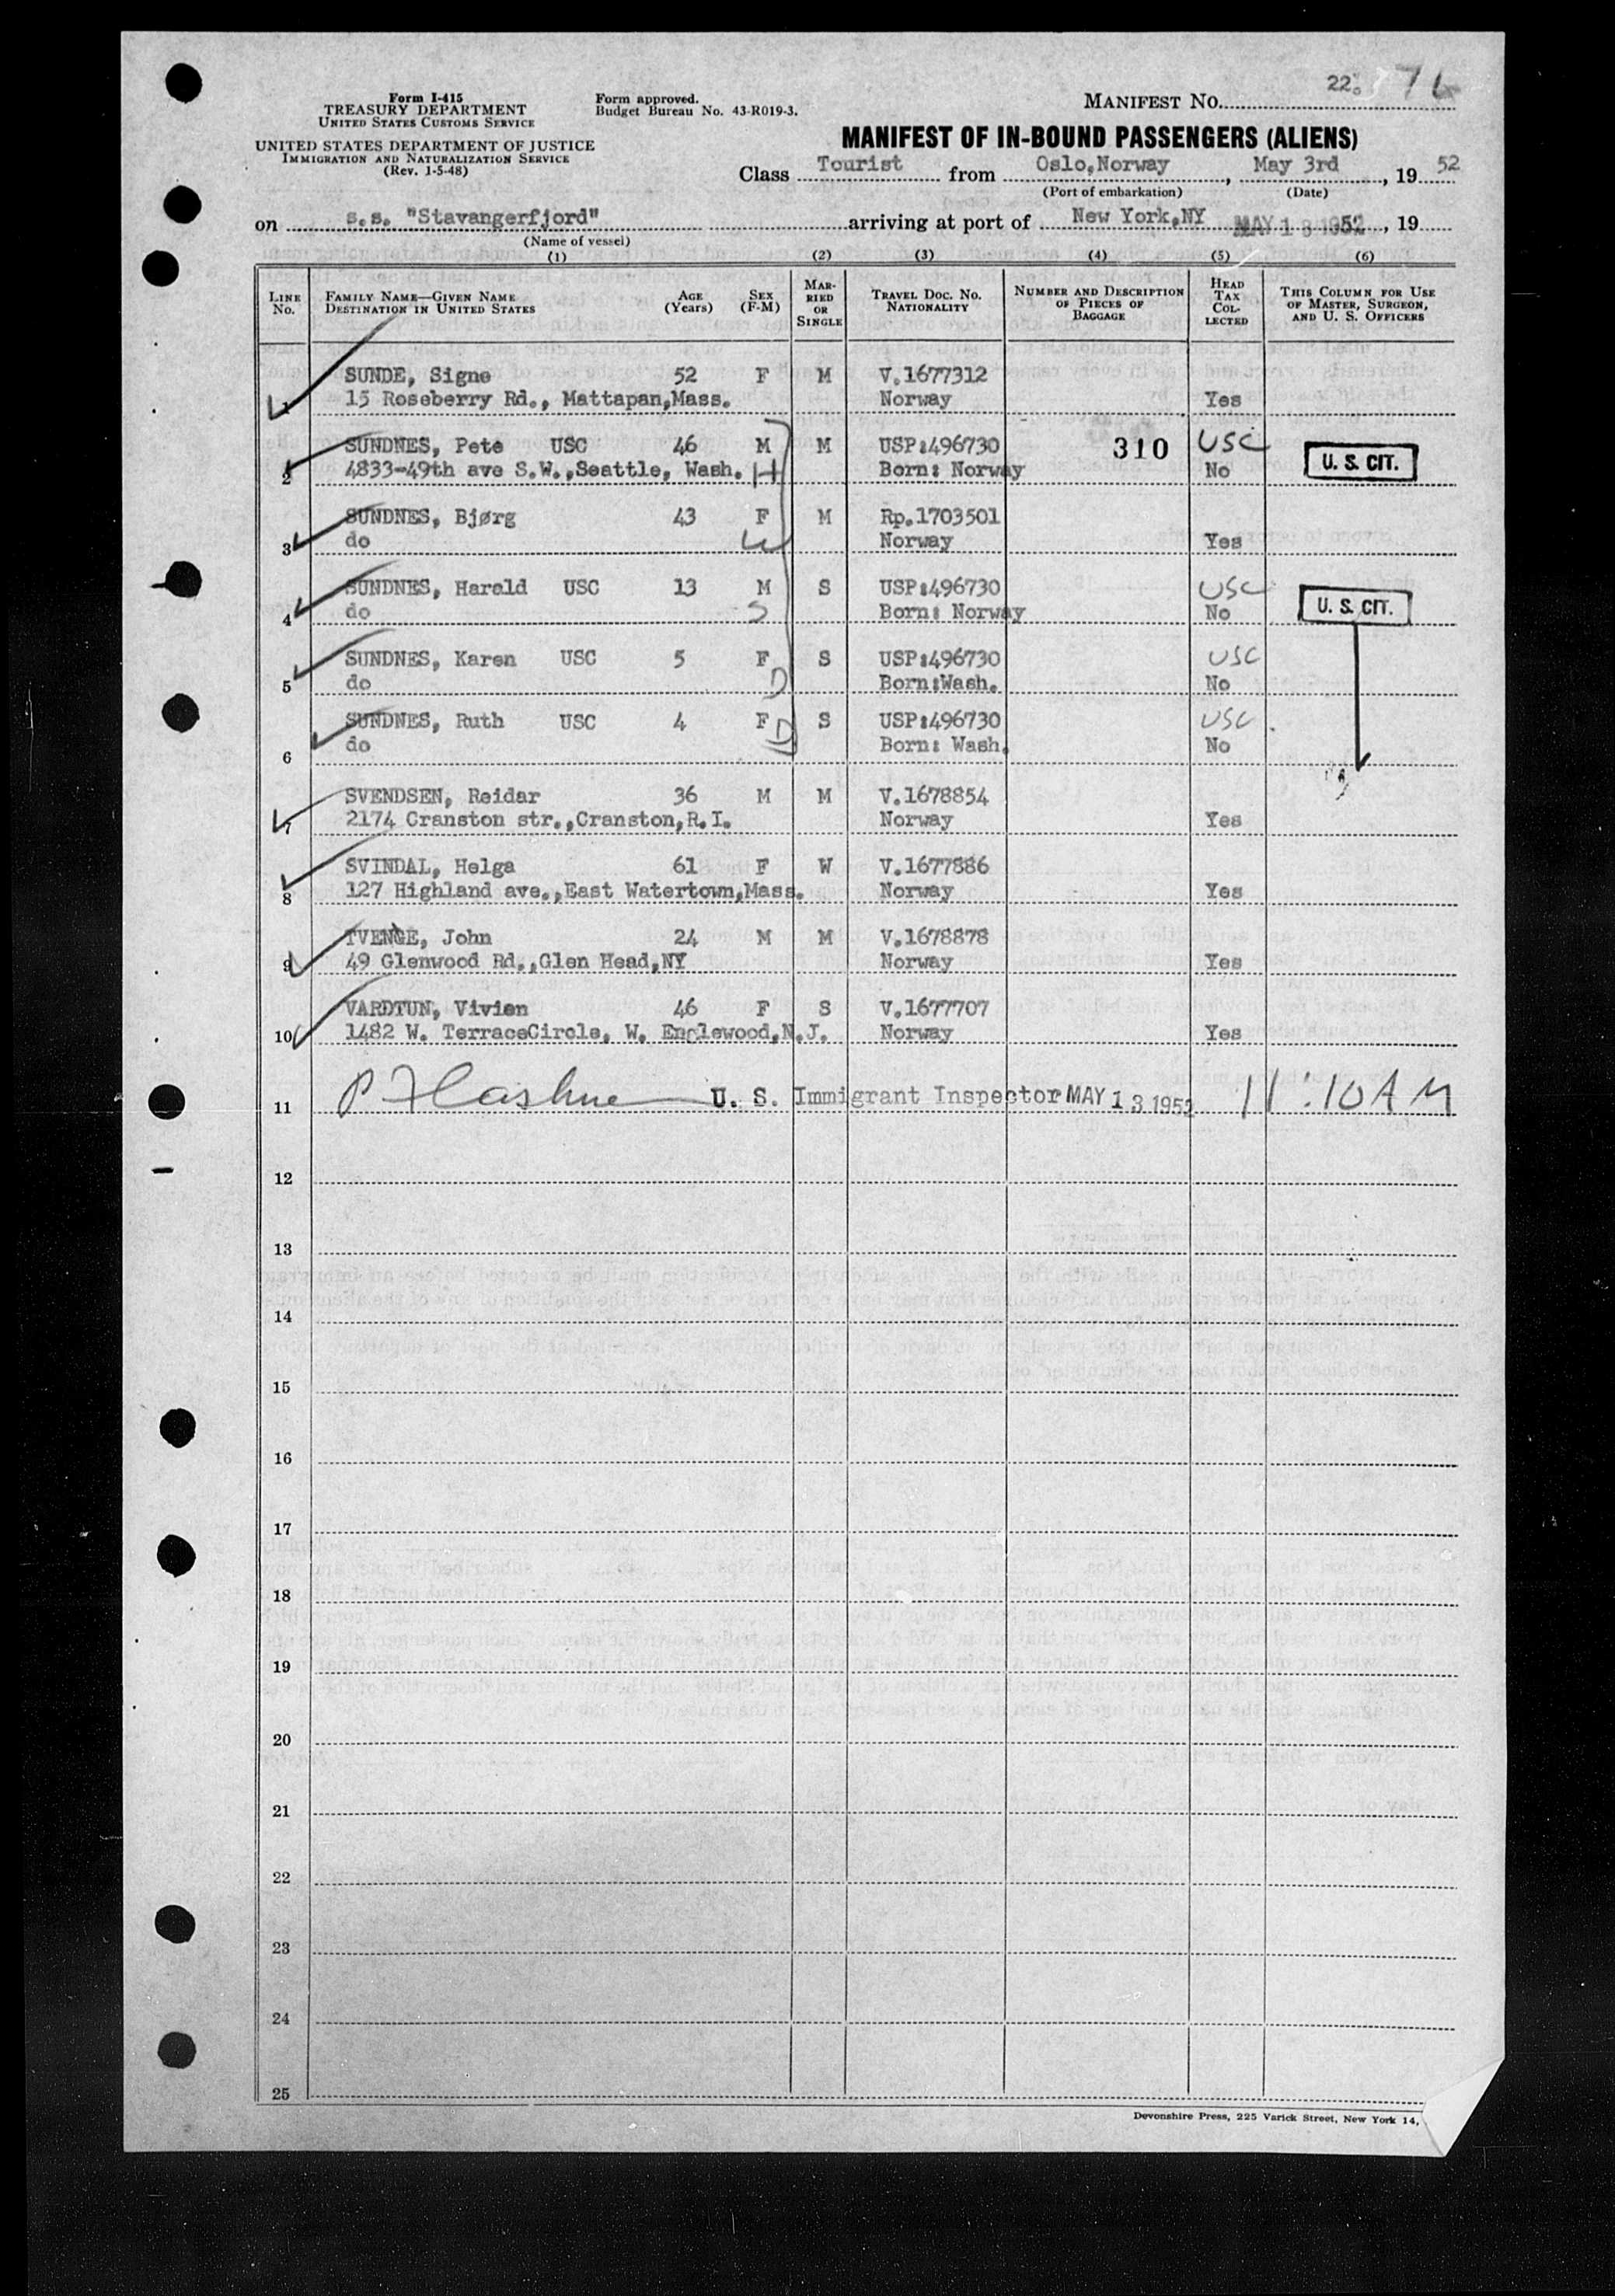 22.
Form I-415
TREASURY DEPARTMENT
UNITED STATES CUSTOMS SERVICE
UNITED STATES DEPARTMENT OF JUSTICE
IMMIGRATION AND NATURALIZATION SERVICE
(Rev. 1-5-48)
Form approved.
Budget Bureau No. 43-R019-3.
MANIFEST No.
MANIFEST OF IN-BOUND PASSENGERS (ALIENS)
Class Tourist from Oslo,Norway, May 3rd, 19 52
(Port of embarkation) (Date)
on s.s. "Stavangerfjord" arriving at port of New York,NY MAY 13 1952, 19
(Name of vessel)
(1) (2) (3) (4) (5) (6)
LINE No. FAMILY NAME—GIVEN NAME DESTINATION IN UNITED STATES AGE (Years) SEX (F-M) MARRIED OR SINGLE TRAVEL DOC. NO. NATIONALITY NUMBER AND DESCRIPTION OF PIECES OF BAGGAGE HEAD TAX COLLECTED THIS COLUMN FOR USE OF MASTER, SURGEON, AND U. S. OFFICERS
SUNDE, Signe 52 F M V.1677312
1 15 Roseberry Rd., Mattapan,Mass. Norway Yes
SUNDNES, Pete USC 46 M M USP:496730 310 USC U. S. CIT.
2 4833-49th ave S.W.,Seattle, Wash. H Born: Norway No
SUNDNES, Bjørg 43 F M Rp.1703501
3 do W Norway Yes
SUNDNES, Harald USC 13 M S USP:496730 USC U. S. CIT.
4 do S Born: Norway No
SUNDNES, Karen USC 5 F S USP:496730 USC
5 do D Born:Wash. No
SUNDNES, Ruth USC 4 F D S USP:496730 USC
6 do Born: Wash. No
SVENDSEN, Reidar 36 M M V.1678854
7 2174 Cranston str.,Cranston,R.I. Norway Yes
SVINDAL, Helga 61 F W V.1677886
8 127 Highland ave.,East Watertown,Mass. Norway Yes
TVENGE, John 24 M M V.1678878
9 49 Glenwood Rd.,Glen Head,NY Norway Yes
VARDTUN, Vivien 46 F S V.1677707
10 1482 W. TerraceCircle, W. Englewood,N.J. Norway Yes
11 U. S. Immigrant Inspector MAY 13 1952 11:10 AM
12
13
14
15
16
17
18
19
20
21
22
23
24
25
Devonshire Press, 225 Varick Street, New York 14,